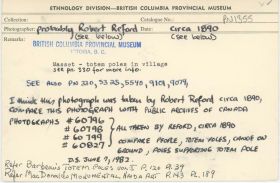 ETHNOLOGY DIVISION—BRITISH COLUMBIA PROVINCIAL MUSEUM
Collection Catalogue No. PN1355
Photographer: probably Robert Reford Date: circa 1890
(see below) (see below)
Remarks
BRITISH COLUMBIA PROVINCIAL MUSEUM
VICTORIA, B.C.
Masset - totem poles in village
see pn 330 for more info.
SEE ALSO PN 330, 5323, 5590, 9101, 9079,
I think this photograph was taken by Robert Reford circa 1890,
COMPARE THIS PHOTOGRAPH WITH PUBLIC ARCHIVES OF CANADA
PHOTOGRAPHS # 60796
# 60798
# 60799
# 60827
ALL TAKEN BY REFORD, CIRCA 1890
COMPARE PEOPLE, TOTEM POLES, CANOE ON
GROUND, POLES SUPPORTING TOTEM POLE
D.S. JUNE 7, 1982.
Refer Barbeau's TOTEM POLES vol I P. 120 Pl. 39
Refer MacDonald's MONUMENTAL HAIDA ART P. 143 PL. 189